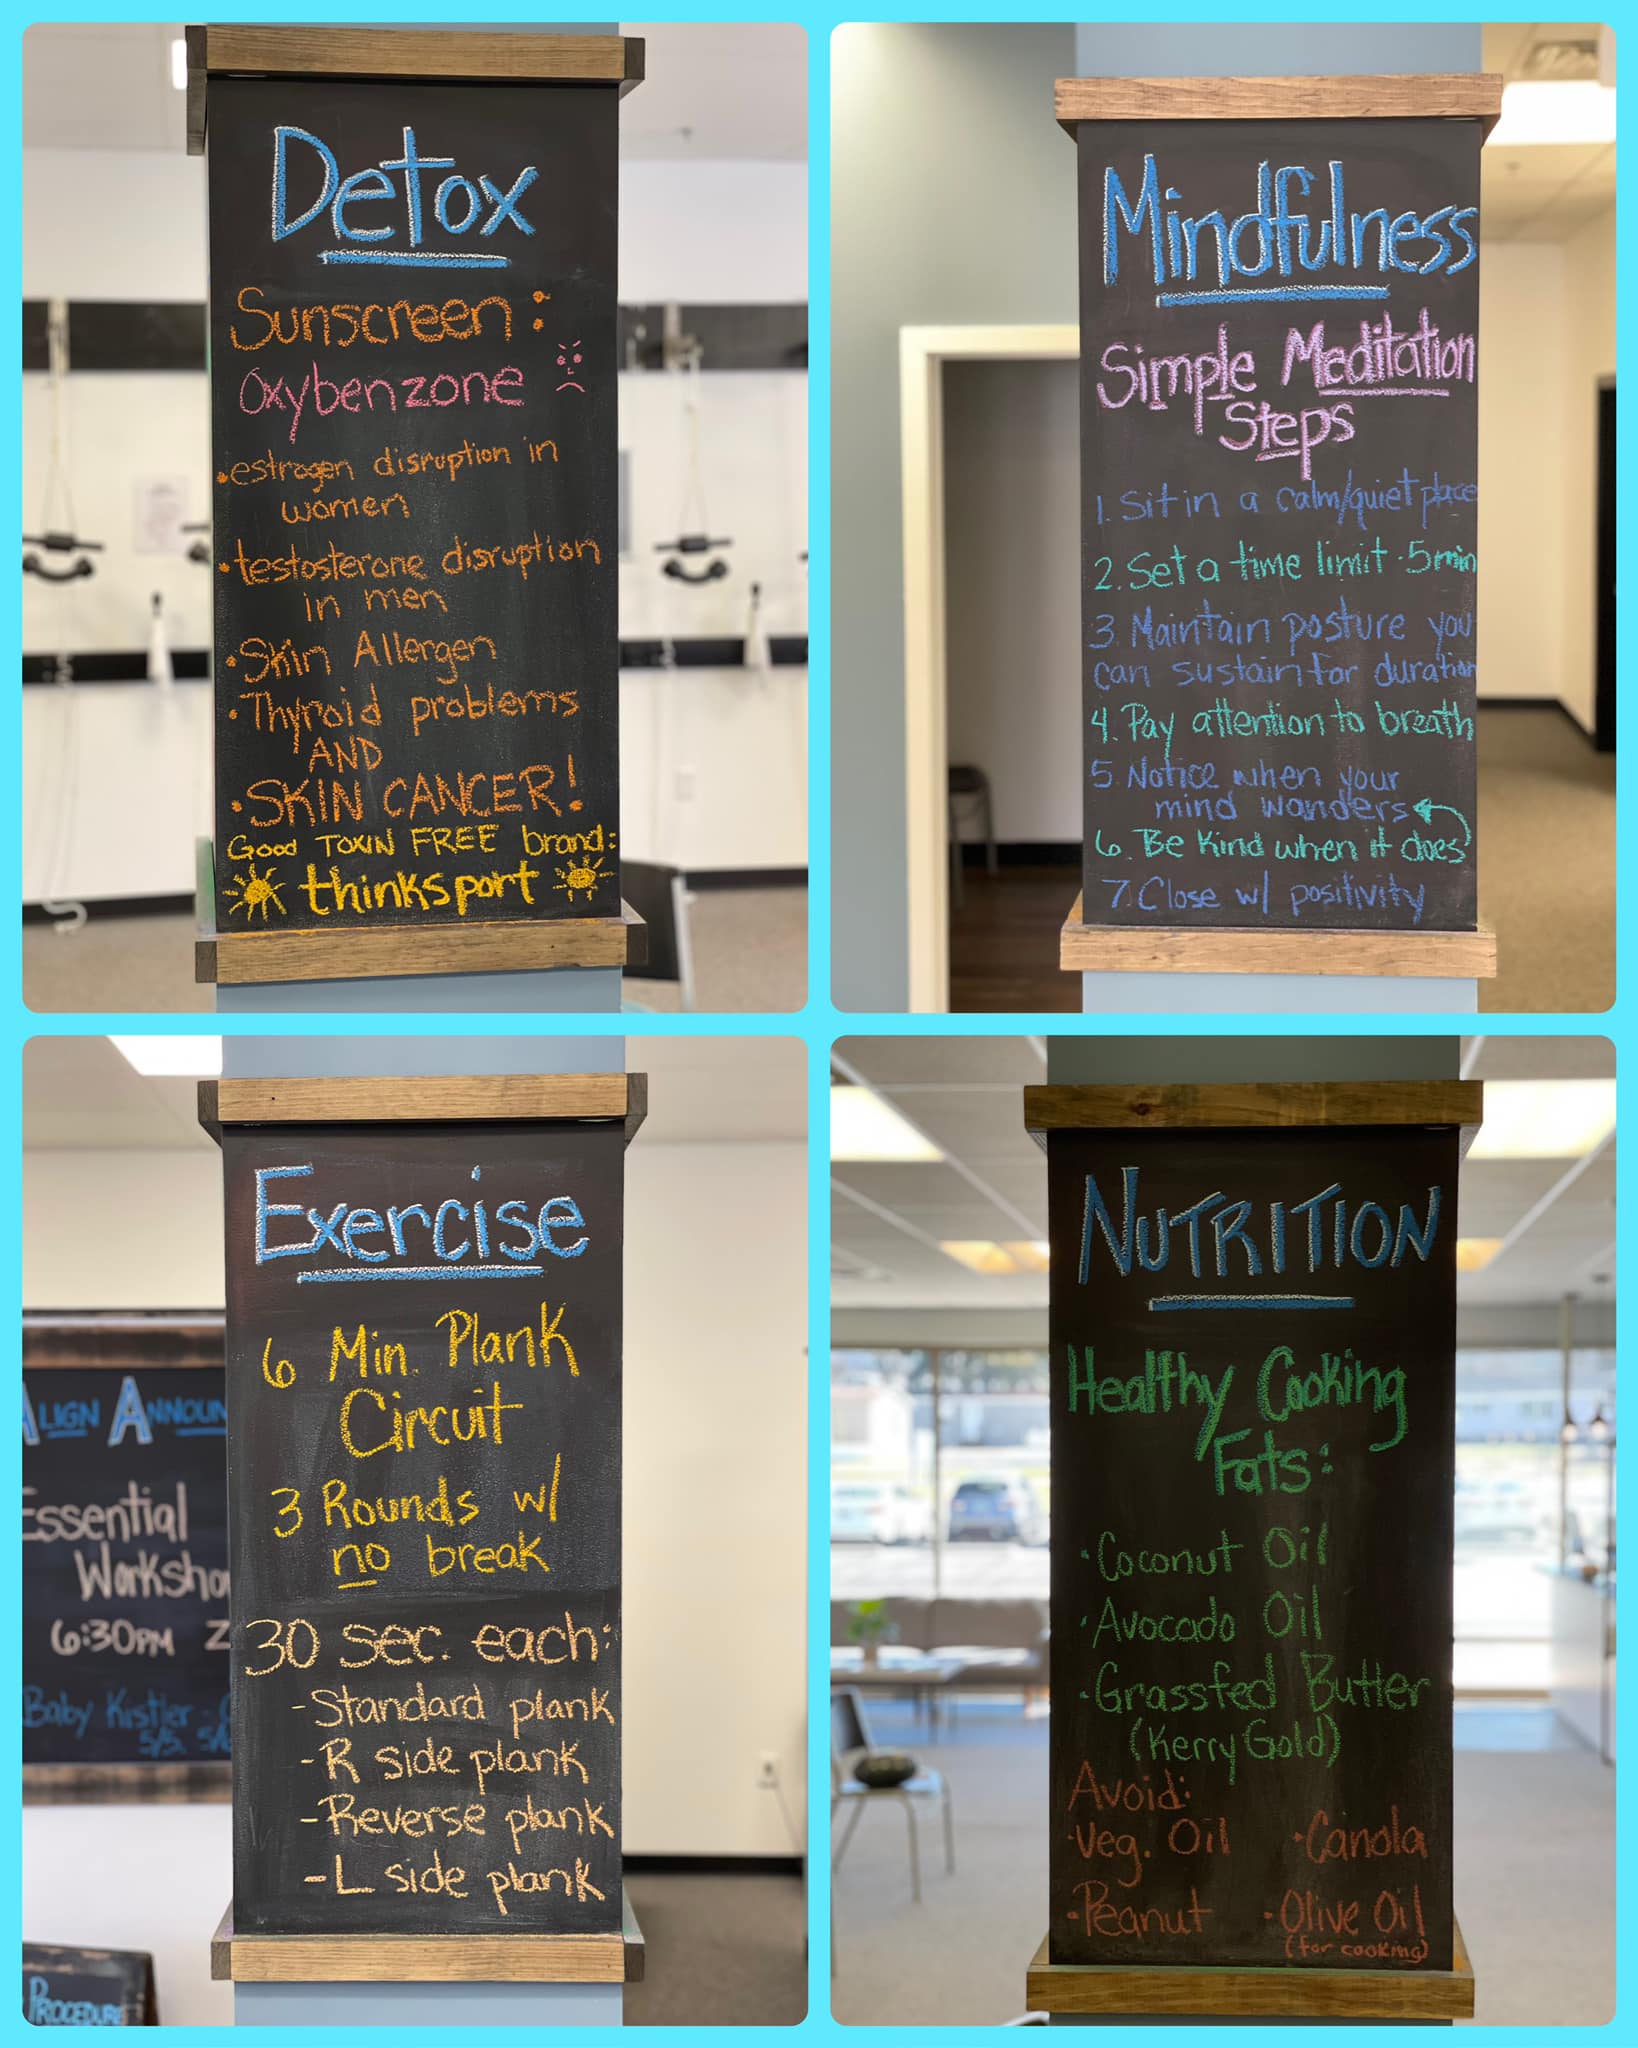 Detox
Sunscreen:
Oxybenzone
•estrogen disruption in
women
•testosterone disruption
in men
•Skin Allergen
•Thyroid problems
AND
•SKIN CANCER!
Good TOXIN FREE brand:
thinksport
Mindfulness
Simple Meditation
Steps
1. Sit in a calm/quiet place
2. Set a time limit •5min
3. Maintain posture you
can sustain for duration
4. Pay attention to breath
5. Notice when your
mind wanders
6. Be Kind when it does
7. Close w/ positivity
Exercise
6 Min. Plank
Circuit
3 Rounds w/
no break
30 sec. each:
-Standard plank
-R side plank
-Reverse plank
-L side plank
ALIGN ANNOUN
Essential
Worksho
6:30PM
Baby Kistler
5/5
PROCEDURE
NUTRITION
Healthy Cooking
Fats:
•Coconut Oil
•Avocado Oil
•Grassfed Butter
(KerryGold)
Avoid:
•Veg. Oil •Canola
•Peanut •Olive Oil
(for cooking)